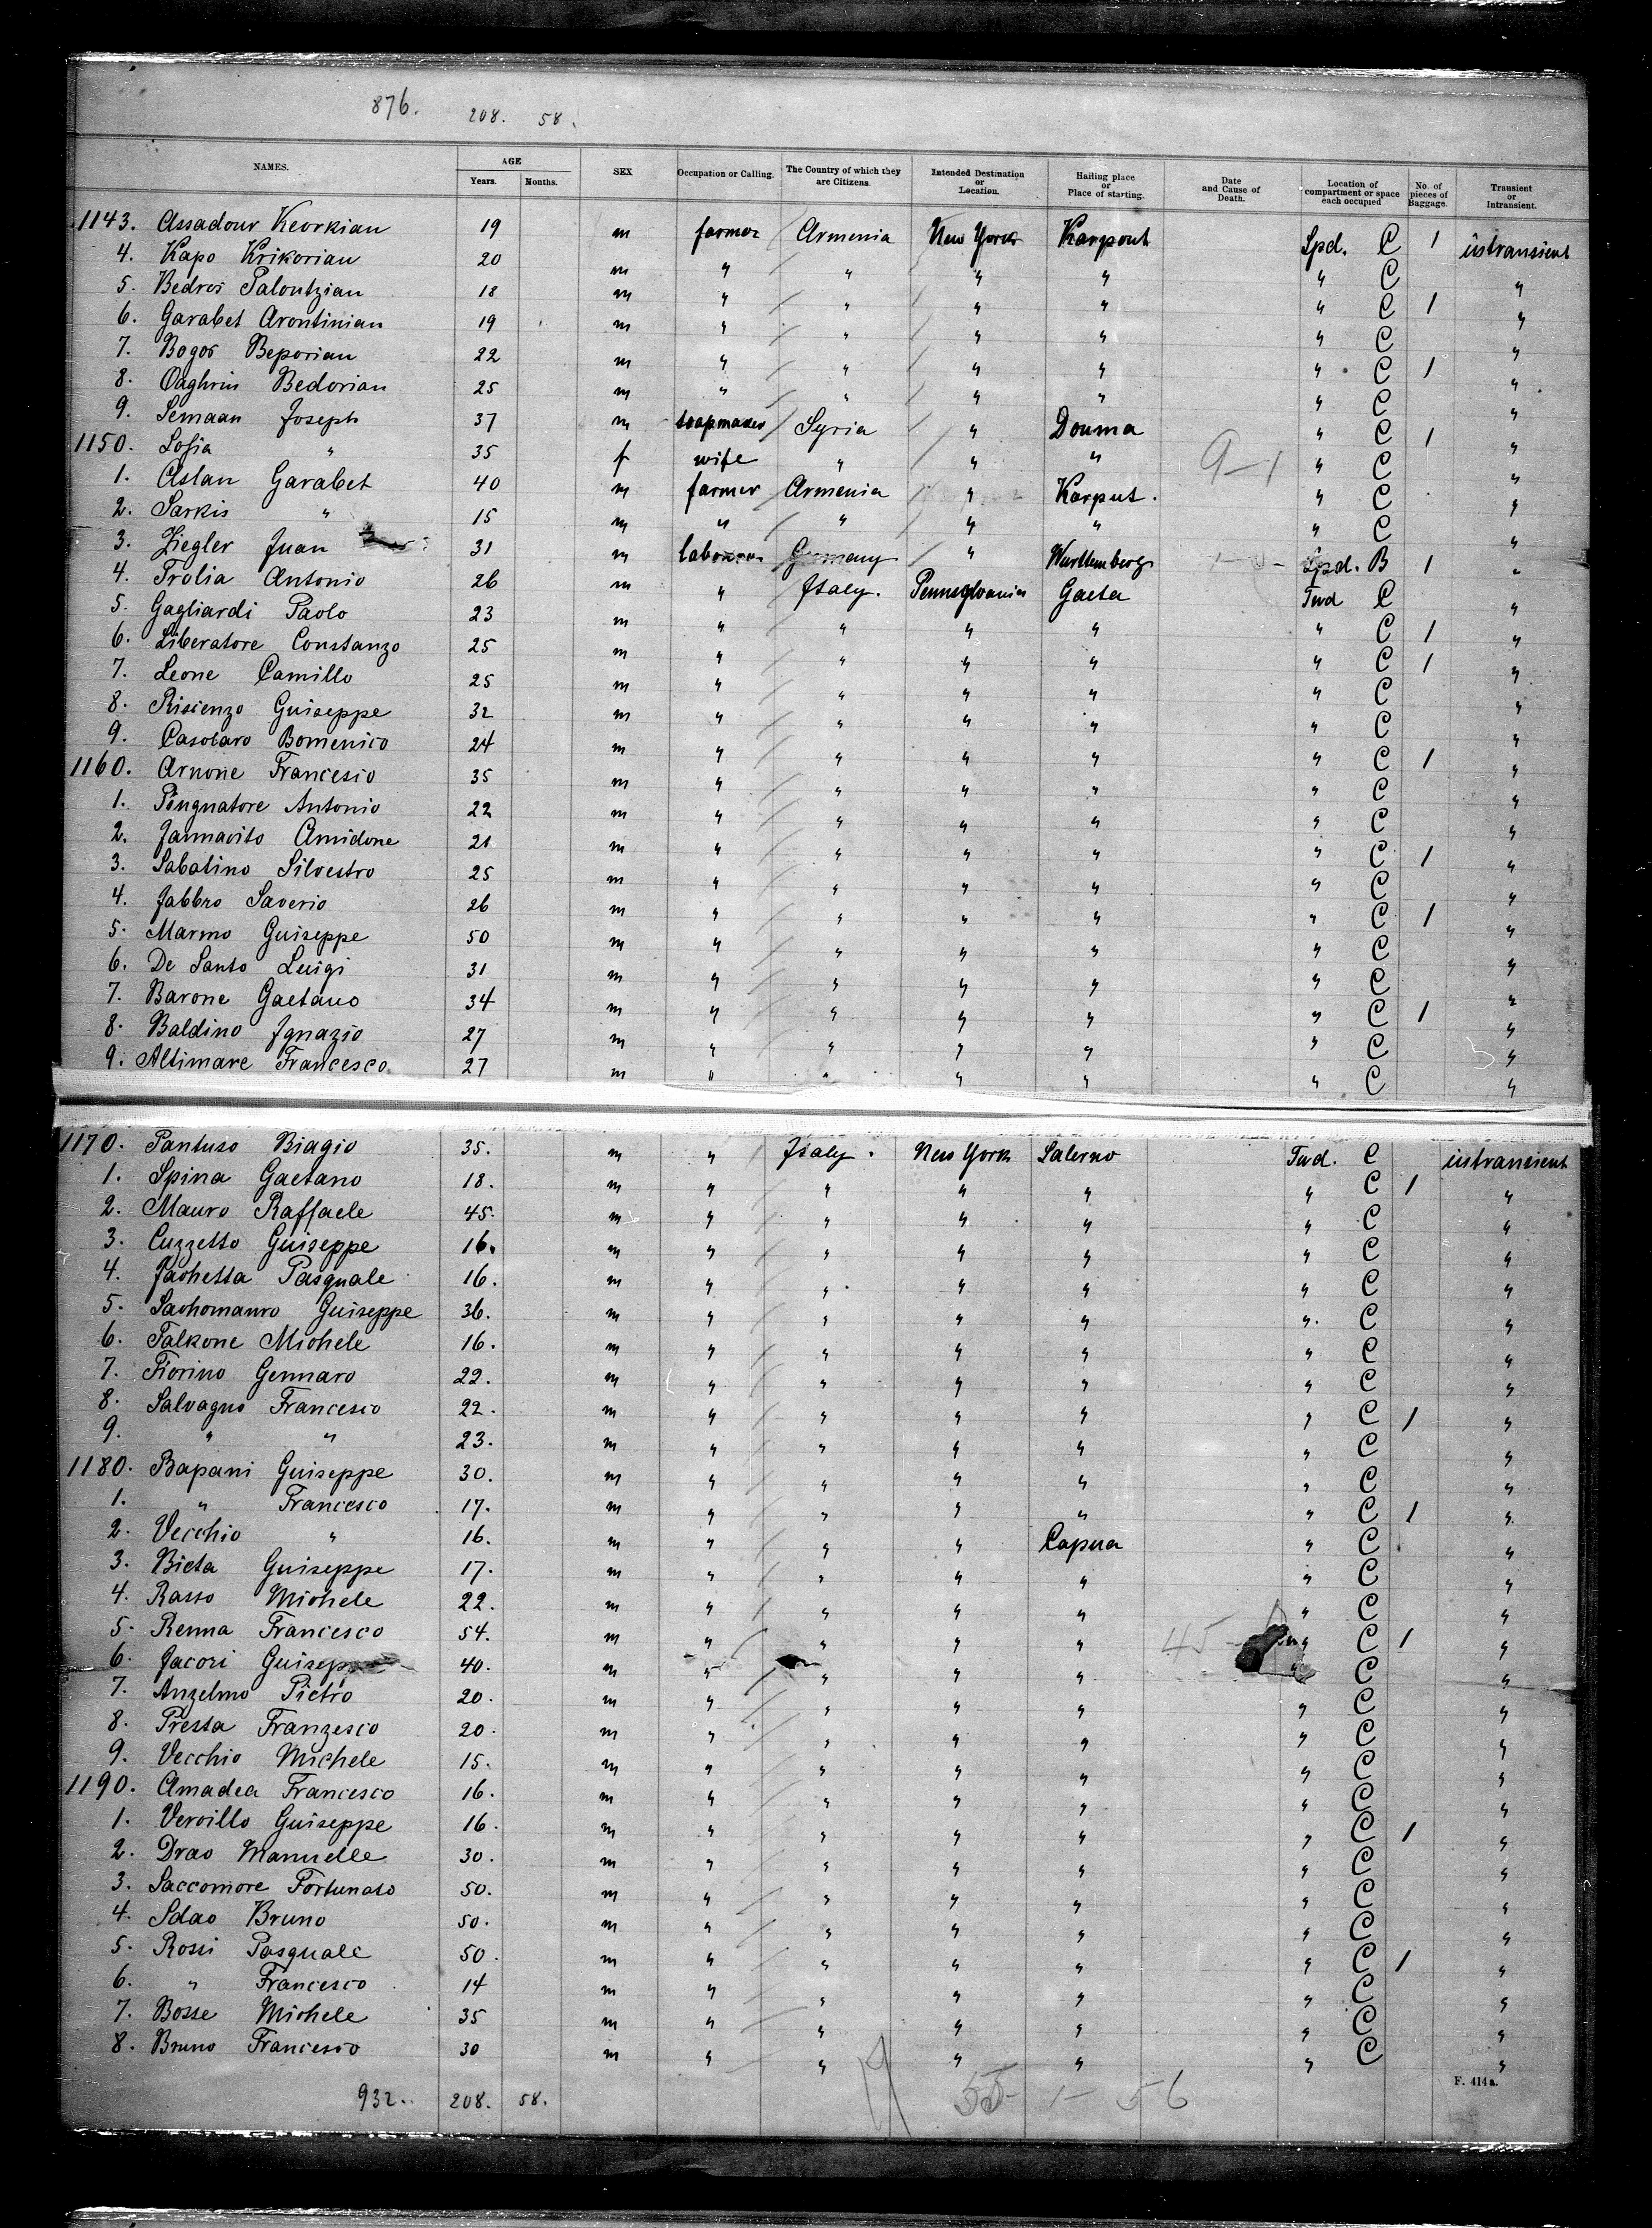 876. 208. 58.
NAMES. AGE Years. Months. SEX Occupation or Calling. The Country of which they are Citizens. Intended Destination or Location. Hailing place or Place of starting. Date and Cause of Death. Location of compartment or space each occupied No. of pieces of Baggage. Transient or Intransient.
1143. Assadour Keorkian 19 m farmer Armenia New York Karpout Spd. C 1 intransient
4. Kapo Krikorian 20 m " " " " " C "
5. Bedros Paloutzian 18 m " " " " " C 1 "
6. Garabet Arontinian 19 m " " " " " C "
7. Bogos Beporian 22 m " " " " " C 1 "
8. Oaghrin Bedorian 25 m " " " " " C "
9. Semaan Joseph 37 m soapmaker Syria " Douma " C 1 "
1150. Sofia " 35 f wife " " " 9-1 " C "
1. Aslan Garabet 40 m farmer Armenia " Karput. " C "
2. Sarkis " 15 m " " " " " C "
3. Ziegler Juan 31 m labourer Germany " Wurttemberg Spd. B 1 "
4. Trolia Antonio 26 m " Italy. Pennsylvania Gaeta Twd C "
5. Gagliardi Paolo 23 m " " " " " C 1 "
6. Liberatore Constanzo 25 m " " " " " C 1 "
7. Leone Camillo 25 m " " " " " C "
8. Risienzo Guiseppe 32 m " " " " " C "
9. Casolaro Bomenico 24 m " " " " " C 1 "
1160. Arnone Francesio 35 m " " " " " C "
1. Pingnatore Antonio 22 m " " " " " C "
2. Jannacito Amidone 21 m " " " " " C 1 "
3. Sabatino Silvestro 25 m " " " " " C "
4. Fabbro Saverio 26 m " " " " " C 1 "
5. Marmo Guiseppe 50 m " " " " " C "
6. De Santo Luigi 31 m " " " " " C "
7. Barone Gaetano 34 m " " " " " C 1 "
8. Baldino Ignazio 27 m " " " " " C "
9. Altimare Francesco 27 m " " " " " C "
1170. Pantuso Biagio 35. m " Italy. New York Salerno Twd. C intransient
1. Spina Gaetano 18. m " " " " " C 1 "
2. Mauro Raffaele 45. m " " " " " C "
3. Cuzzetto Guiseppe 16. m " " " " " C "
4. Jachetta Pasquale 16. m " " " " " C "
5. Sachomauro Guiseppe 36. m " " " " " C "
6. Falkone Michele 16. m " " " " " C "
7. Fiorino Gennaro 22. m " " " " " C "
8. Salvagno Francesco 22. m " " " " " C 1 "
9. " " 23. m " " " " " C "
1180. Bapani Guiseppe 30. m " " " " " C "
1. " Francesco 17. m " " " " " C 1 "
2. Vecchio " 16. m " " " Capua " C "
3. Bieta Guiseppe 17. m " " " " " C "
4. Rasso Michele 22. m " " " " " C "
5. Renna Francesco 54. m " " " " 45 " C 1 "
6. Jacori Guiseppe 40. m " " " " " C "
7. Anzelmo Pietro 20. m " " " " " C "
8. Presta Franzesco 20. m " " " " " C "
9. Vecchio Michele 15. m " " " " " C "
1190. Amadea Francesco 16. m " " " " " C "
1. Vervillo Guiseppe 16. m " " " " " C 1 "
2. Drao Manuelle 30. m " " " " " C "
3. Saccomore Fortunato 50. m " " " " " C "
4. Sdao Bruno 50. m " " " " " C "
5. Rossi Pasquale 50. m " " " " " C 1 "
6. " Francesco 14 m " " " " " C "
7. Bosse Michele 35 m " " " " " C "
8. Bruno Francesco 30 m " " " " " C "
F. 414a.
932. 208. 58. 55- 1- 56